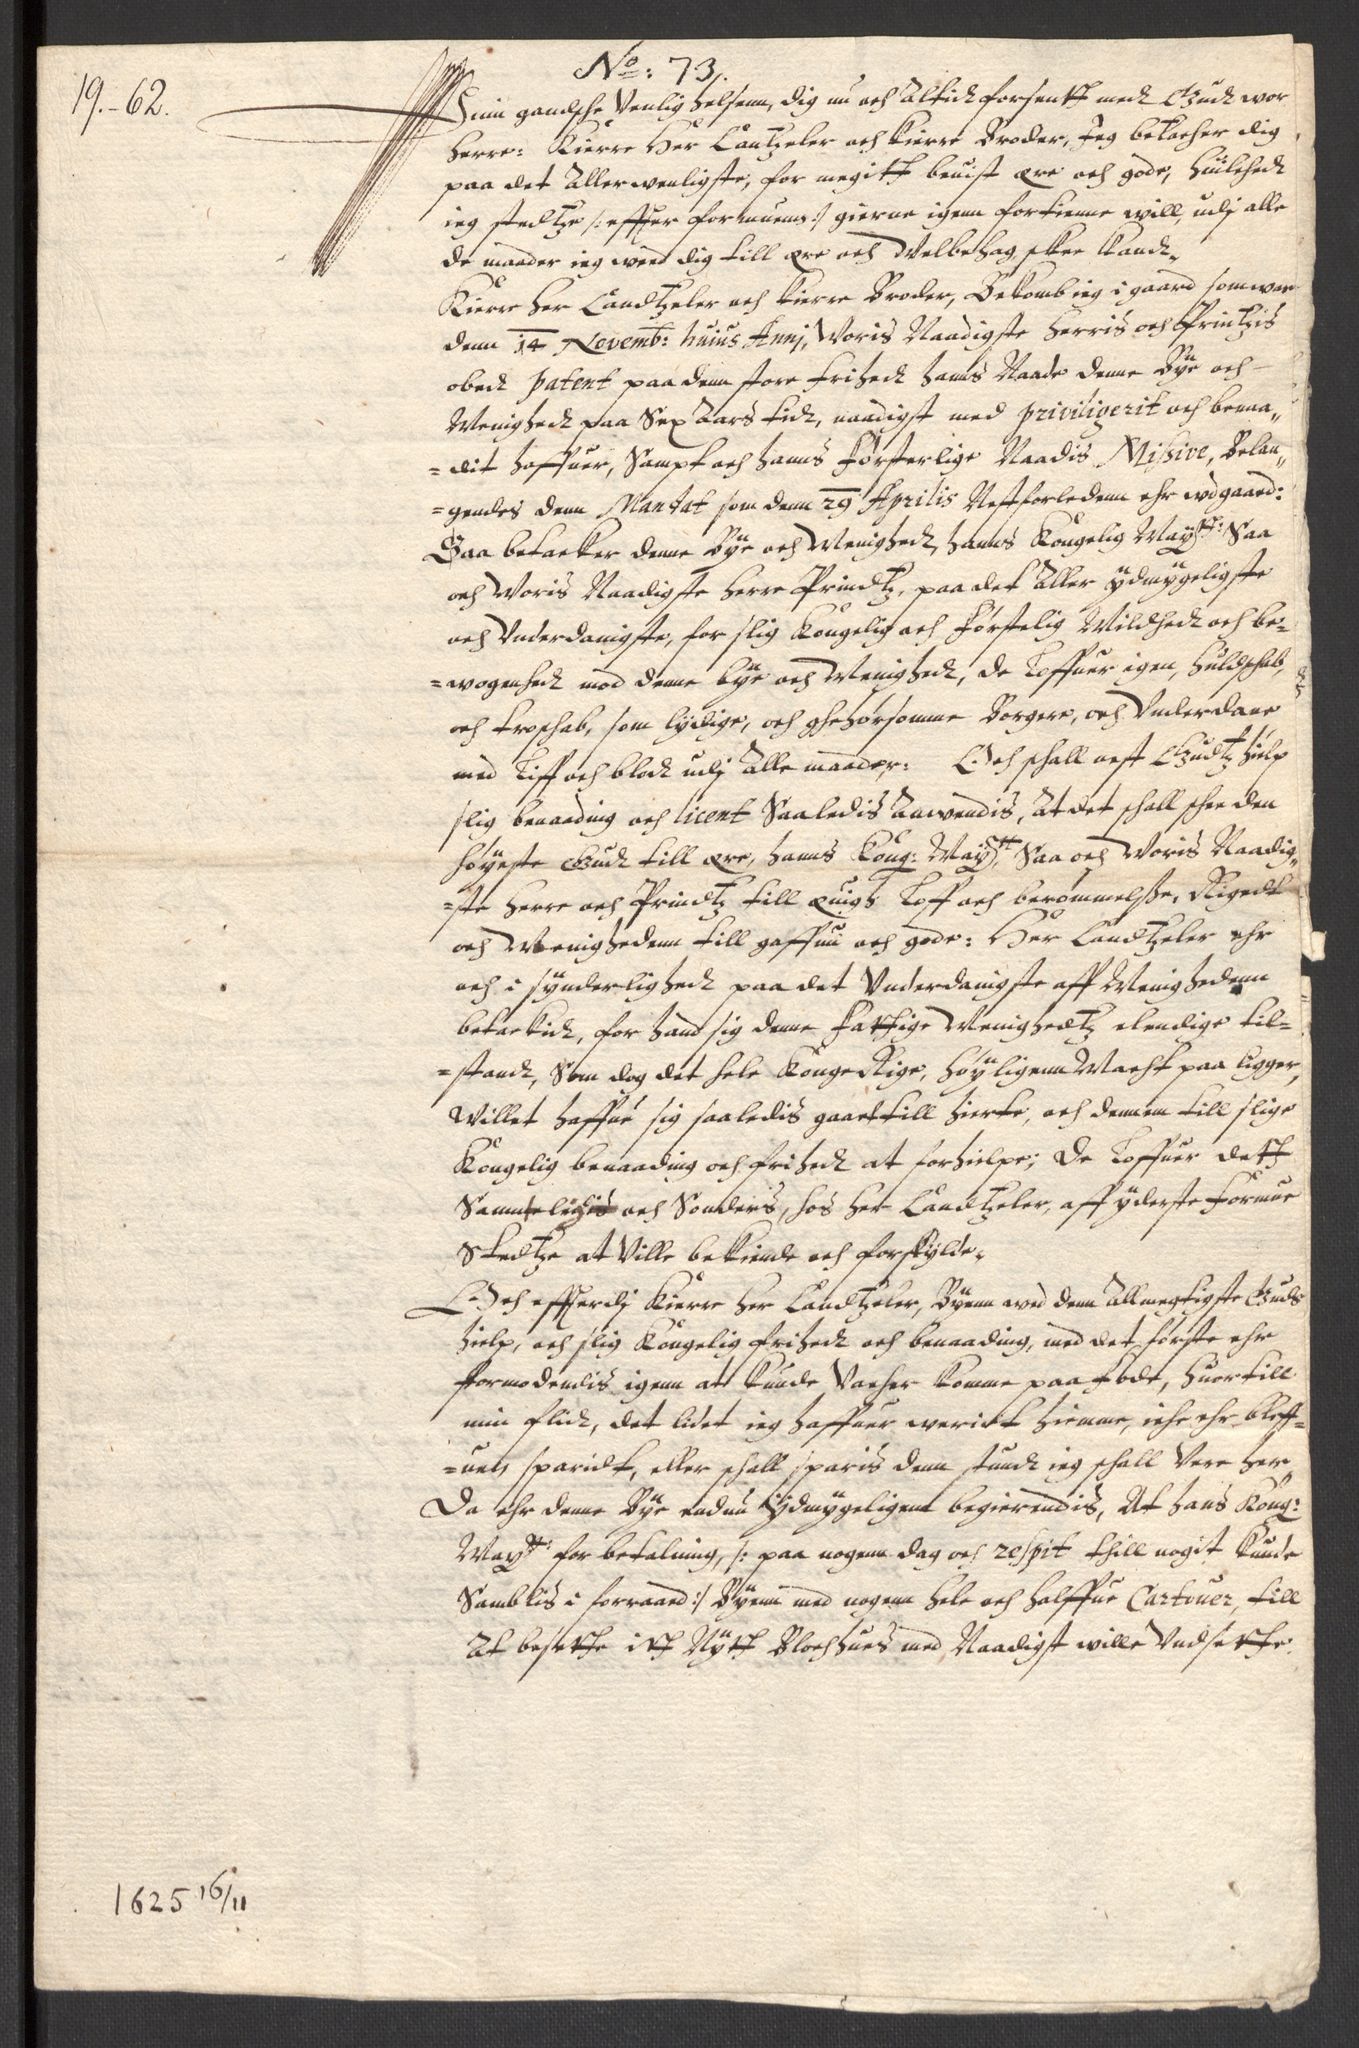 19.-62.
No: 73.
Minn gandsche Venlig helsenn, dig nu och Altid forsentt med Gud wor
Herre: Kierre Her Cantzeler och kierre Broder, Jeg betacher dig
paa det Allerwenligste, for megitt beuist ære och gode, huilched
ieg stedtze /: effter formuenn :/ gierne igenn fortienne will, udj alle
de maader ieg weed dig till ære och Velbehag skee kand,
Kierre Her Candtzeler och kierre Broder, Bekomb ieg i gaard som war
denn 14 Novemb: huius Annj, Woris Naadigste Herris och Printzis
obed patent paa denn store frihed hanns Naade denne Bye och
Menighed paa Sex Aars tid, naadigst med priviligerit och benaa„
=dit haffuer, Sampt och hanns Førsterlige Naadis Missive, Belan„
=gendes denn Mandat som denn 29 Aprilis Nestforledenn ehr udgaaed:
Saa betacker denne Bye och Menighed, hanns Kongelig Maytt: Saa
och Woris Naadigste Herre Prindtz, paa det Aller ydmygeligste
och Vnderdanigste, for slig Kongelig och Førstelig Mildhed och be=
=wogenhed mod denne bye och Menighed, de loffuer igen, huldschab,
och troschab, som lydige, och gehorsomme Borgere, och Vnderdane
med Liff och blod udj Alle maader: Och schall nest Gudtz hielp
slig benaading och licent Saaledis Anwendis, At det schall schee den
höyeste Gud till ære, hanns Kong: Maytt, Saa och Woris Naadig„
=ste Herre och Prindtz till euigt Loff och berommelsse, Rigedt
och Menighedenn till gaffnn och gode: Her Candtzeler ehr
och i synderlighed paa det Vnderdanigste aff Menighedenn
betackid, for hand sig denne fattige Menighedtz elendige til=
=stand, Som dog det hele KongeRige, höyligenn Macht paa ligger,
Willet haffue sig saaledis gaaet till hierte, och dennem till slige
Kongelig benaading och frihed at forhielpe; De loffuer dett
Samteligis och Sonders, hos Her Candtzeler, aff yderste formue
Stedtze at Ville bekiende och forskylde.
Och effterdj Kierre Her Candtzeler, Byenn wed denn Allmegtigste Guds
hielp, och slig Kongelig frihed och benaading, med det første ehr
formodendis igenn at kunde Vacher komme paa fode, huortill
min flid, det lidet ieg haffuer werit hiemme, iche ehr bleff=
=uen sparidt, eller schall sparis denn stund ieg schall Vere her
Da ehr denne Bye endnu Ydmygeligenn begierendis, At hans Kong:
Maytt: for betalning, /: paa nogenn dag och respit thill nogit kunde
Samblis i forraad :/ Byenn med nogenn hele och halffue Cartouer, till
At besette itt Nytt Blochhues med Naadigst wille Vndsette.
1625 16/11